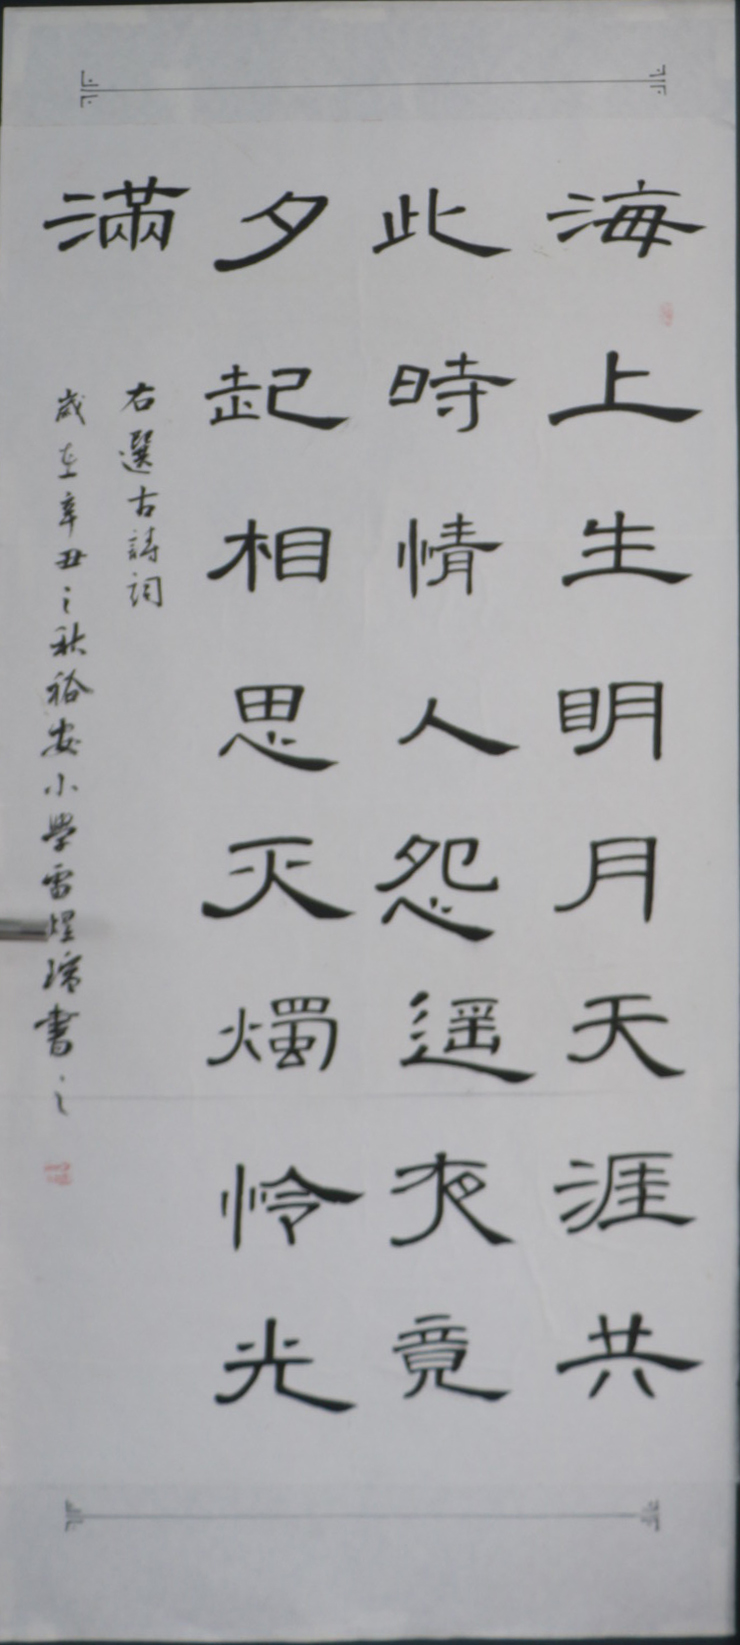 海上生明月天涯共
此時情人怨遥夜竟
夕起相思灭燭怜光
滿
右選古詩詞
歲在辛丑之秋裕安小學雷煜瑤書之